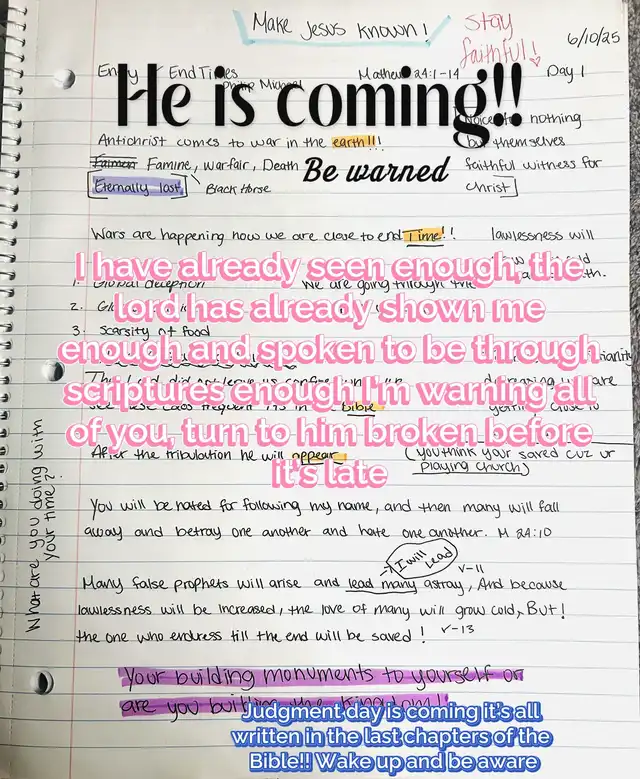 Make Jesus known!
Stay
faithful!
6/10/25
End Times
Mathew 24:1-14
Day 1
Philip Michael
He is coming!!
nothing
Antichrist comes to war in the earth!!!
but themselves
Famine, warfair, Death
Be warned
faithful witness for
[Eternally lost]
Black Horse
Christ]
Wars are happening now we are close to end Time!!
lawlessness will
I have already seen enough, the
lord has already shown me
enough and spoken to be through
scriptures enough I'm warning all
of you, turn to him broken before
it's late
1. Global deception
We are going through the
2.
3. Scarsity of food
Bible
After the tribulation he will appear
(you think your saved cuz ur
playing church)
What are you doing with
your time?
You will be hated for following my name, and then many will fall
away and betray one another and hate one another. M 24:10
I will Lead
Many false prophets will arise and lead many astray, And because
v-11
lawlessness will be increased, the love of many will grow cold, But!
the one who endress till the end will be saved! v-13
Your building monuments to yourself or
are you the kingdom!
Judgment day is coming it's all
written in the last chapters of the
Bible!! Wake up and be aware